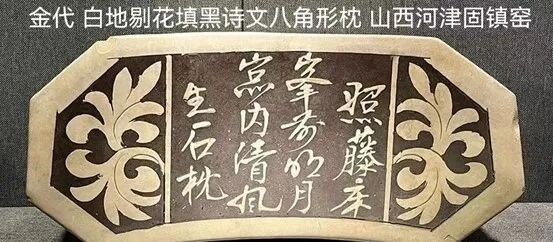 金代 白地剔花填黑诗文八角形枕 山西河津固镇窑
照藤床
峯前明月
窓内清风
生石枕